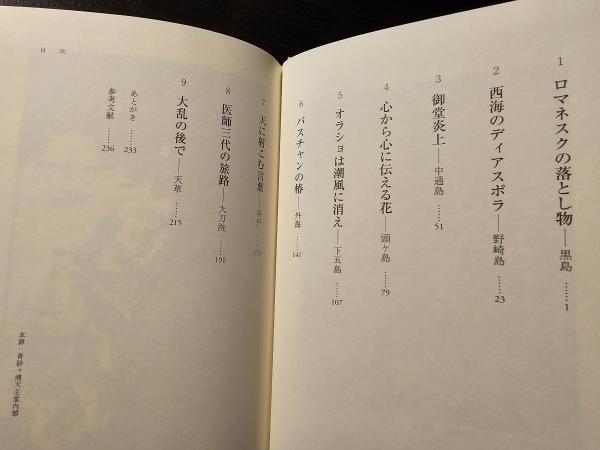 目次
1 ロマネスクの落とし物──黒島……1
2 西海のディアスポラ──野崎島……23
3 御堂炎上──中通島……51
4 心から心に伝える花──頭ヶ島……79
5 オラショは潮風に消え──下五島……107
6 バスチャンの椿──外海……141
7 天に射こむ言葉──平戸……171
8 医師三代の旅路──大刀洗……191
9 大乱の後で──天草……215
あとがき……233
参考文献……236
本扉:青砂ヶ浦天主堂内部